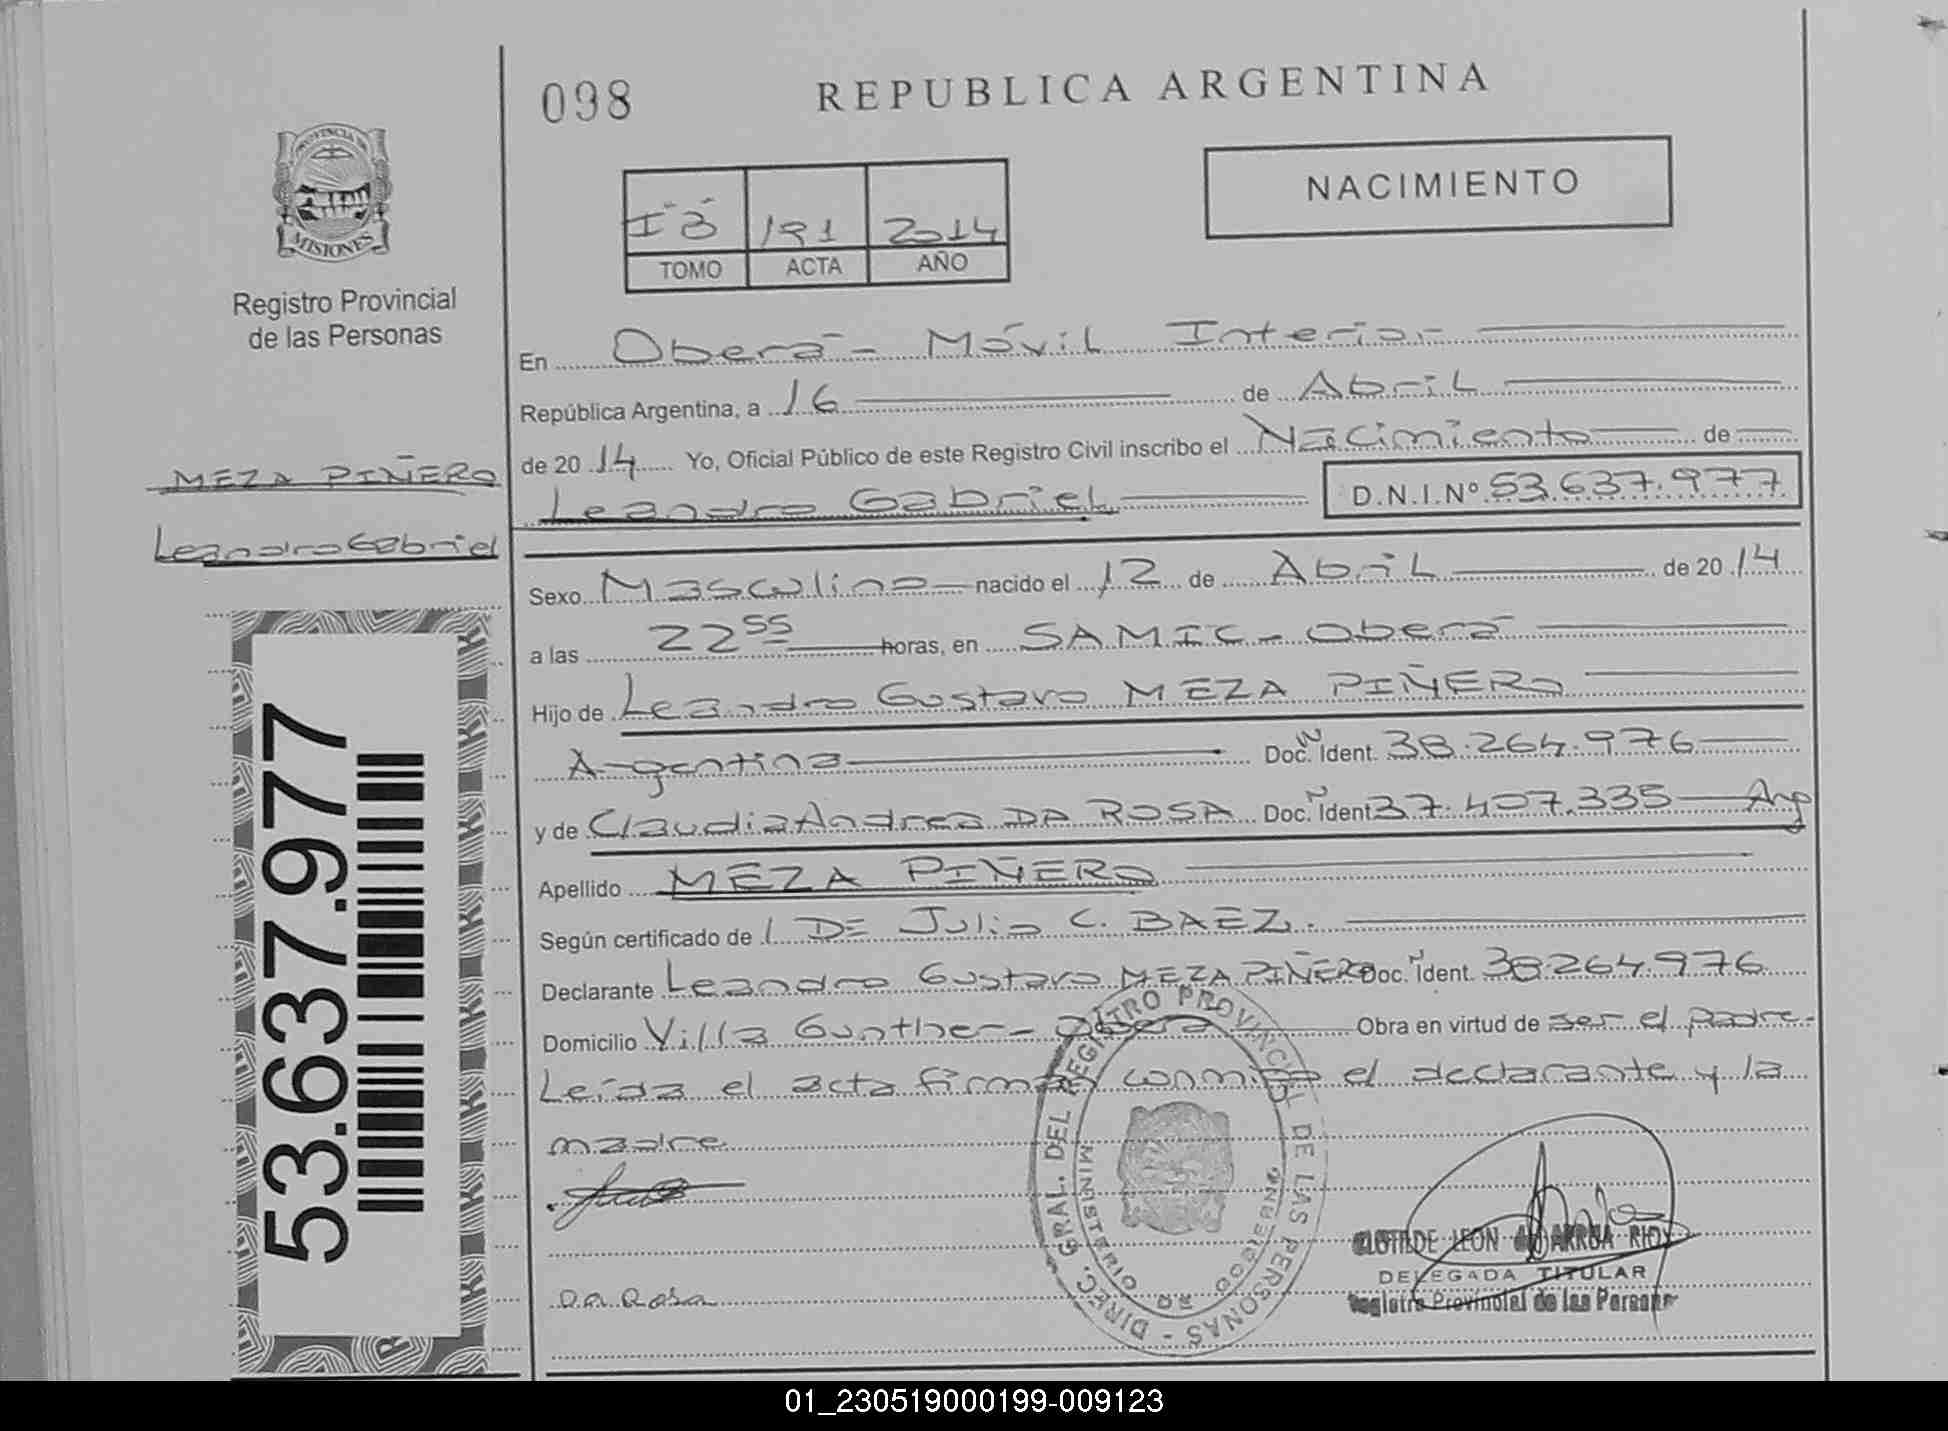 098
REPUBLICA ARGENTINA
NACIMIENTO
191 2014
TOMO ACTA AÑO
PROVINCIA DE
MISIONES
Registro Provincial
de las Personas
MEZA PIÑERO
Leandro Gabriel
53.637.977
En Oberá - Móvil Interior
República Argentina, a 16 de Abril
de 2014 Yo, Oficial Público de este Registro Civil inscribo el Nacimiento de
Leandro Gabriel D.N.I.Nº 53.637.977
Sexo Masculino nacido el 12 de Abril de 2014
a las 22 55 horas, en SAMIC - Oberá
Hijo de Leandro Gustavo MEZA PIÑERO
Argentina Doc. Ident. 38.264.976
y de Claudia Andrea DA ROSA Doc. Ident 37.407.335 Arg
Apellido MEZA PIÑERO
Según certificado de DE Julio C. BAEZ.
Declarante Leandro Gustavo MEZA PIÑERO Doc. Ident. 38.264.976
Domicilio Villa Gunther - Oberá Obra en virtud de ser el padre.
Leída el acta firman conmigo el declarante y la
madre.
Da Rosa
DIREC. GRAL. DEL REGISTRO PROVINCIAL DE LAS PERSONAS -
MINISTERIO DE GOBIERNO
CLOTILDE LEON
DELEGADA TITULAR
Registro Provincial de las Personas
01_230519000199-009123